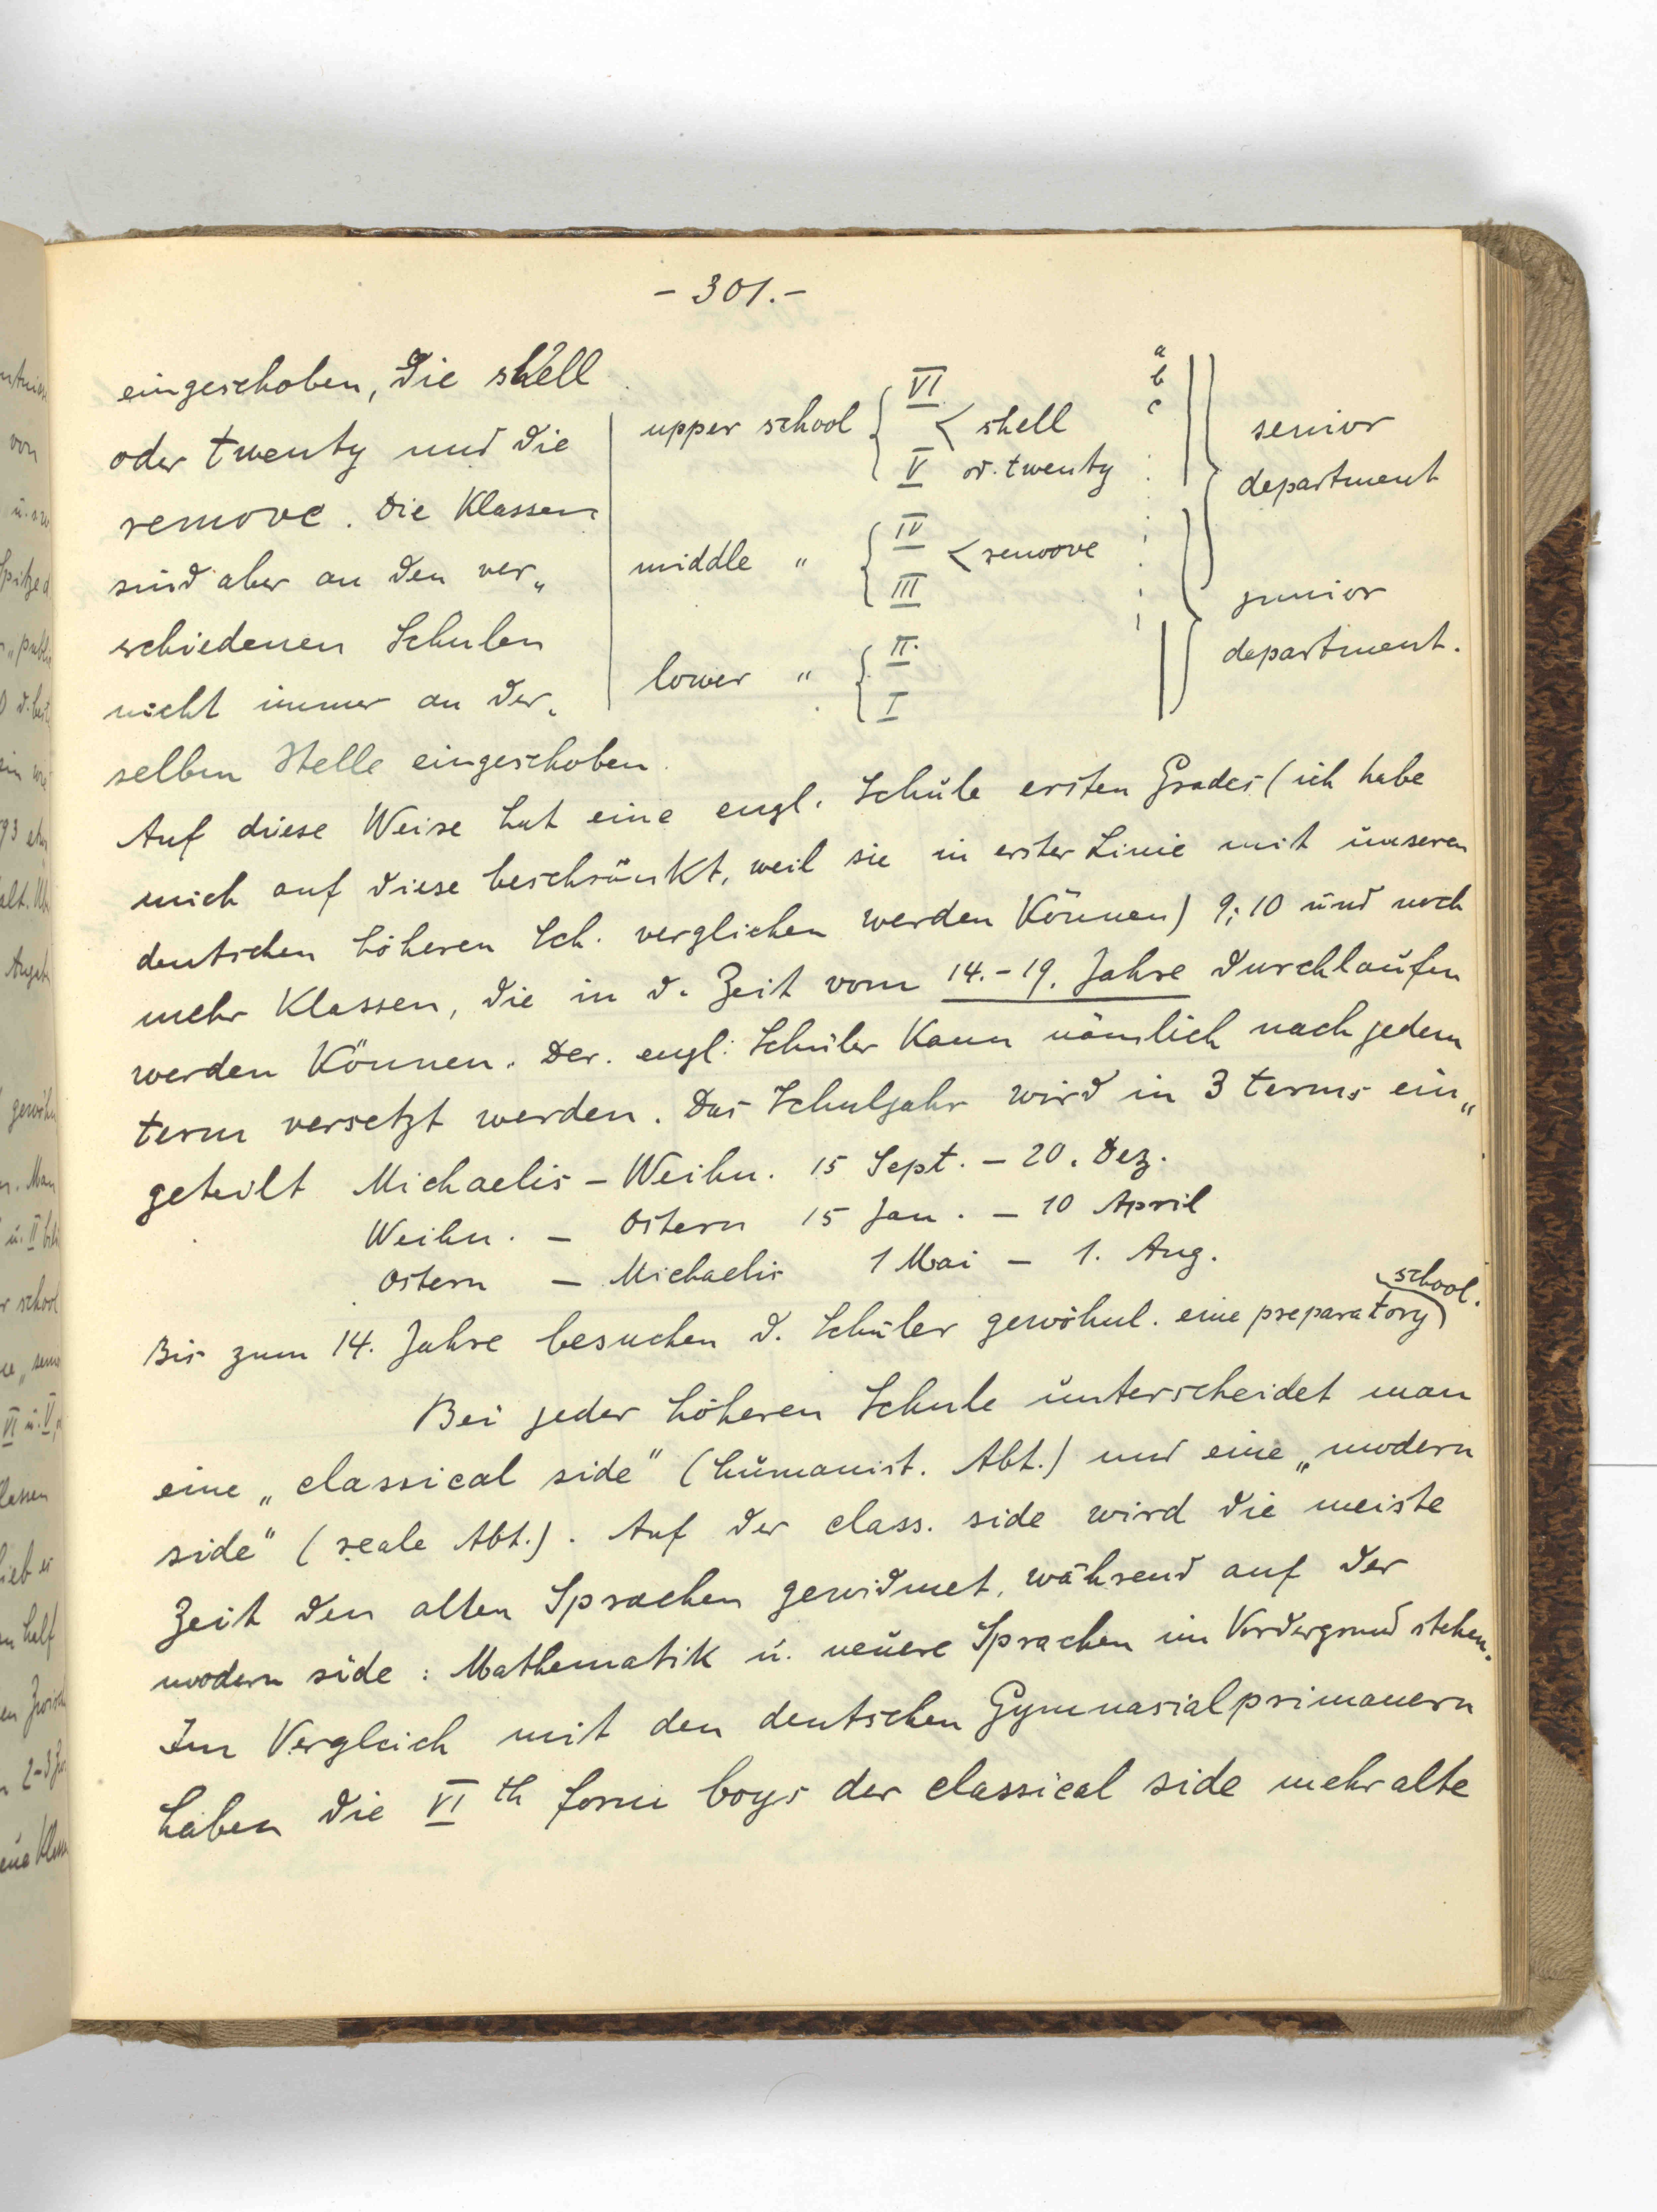 - 301. -
eingeschoben, die shell
oder twenty und die
remove. Die Klassen
sind aber an den ver„
schiedenen Schulen
nicht immer an der„
selben Stelle eingeschoben.
upper school { VI < shell a b c
V od. twenty
middle " { IV < remove
III
lower " { II.
I
senior
department
junior
department.
Auf diese Weise hat eine engl. Schule ersten Grades (ich habe
mich auf diese beschränkt, weil sie in erster Linie mit unseren
deutschen höheren Sch. verglichen werden können) 9; 10 und noch
mehr Klassen, die in d. Zeit vom 14. - 19. Jahre durchlaufen
werden können. Der engl. Schüler kann nämlich nach jedem
term versetzt werden. Das Schuljahr wird in 3 terms ein„
geteilt Michaelis - Weihn. 15 Sept. - 20. Dez.
Weihn. - Ostern 15 Jan. - 10 April
Ostern - Michaelis 1 Mai - 1. Aug.
Bis zum 14. Jahre besuchen d. Schüler gewöhnl. eine preparatory school.
Bei jeder höheren Schule unterscheidet man
eine „classical side" (humanist. Abt.) und eine „modern
side" (reale Abt.). Auf der class. side wird die meiste
Zeit den alten Sprachen gewidmet, während auf der
modern side: Mathematik u. neuere Sprachen im Vordergrund stehen.
Im Vergleich mit den deutschen Gymnasialprimanern
haben die VI th form boys der classical side mehr alte